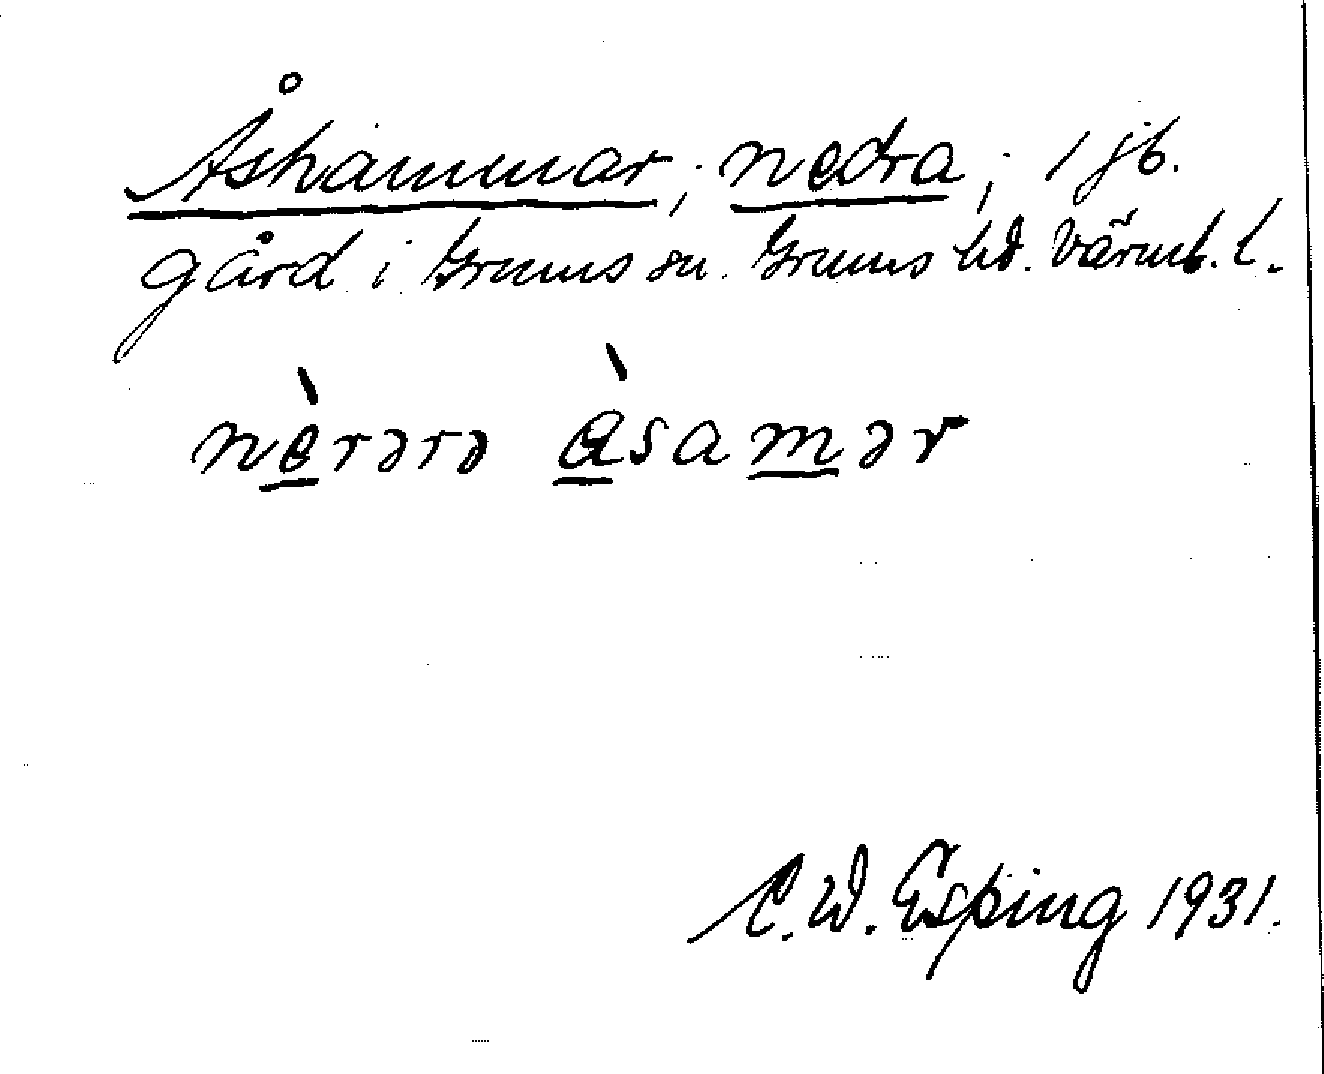 Åshammar, nedra, 1 jb.
gård i Grums sn. Grums hd. Värml. l.
nèrərə àsamər
C. W. Esping 1931.